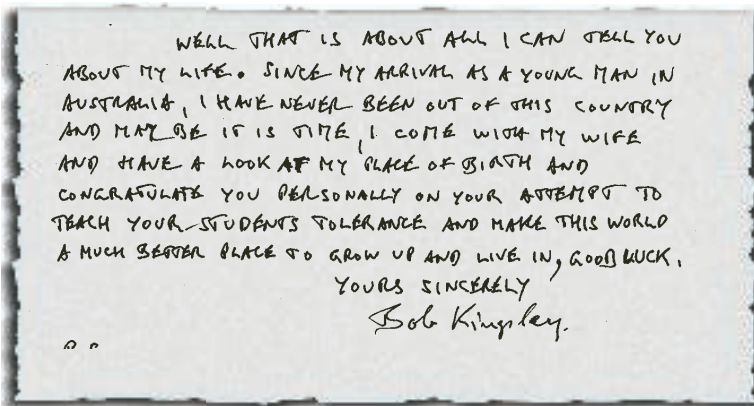 WELL THAT IS ABOUT ALL I CAN TELL YOU
ABOUT MY LIFE. SINCE MY ARRIVAL AS A YOUNG MAN IN
AUSTRALIA, I HAVE NEVER BEEN OUT OF THIS COUNTRY
AND MAY BE IT IS TIME, I COME WITH MY WIFE
AND HAVE A LOOK AT MY PLACE OF BIRTH AND
CONGRATULATE YOU PERSONALLY ON YOUR ATTEMPT TO
TEACH YOUR STUDENTS TOLERANCE AND MAKE THIS WORLD
A MUCH BETTER PLACE TO GROW UP AND LIVE IN, GOOD LUCK.
YOURS SINCERELY
Bob Kingsley.